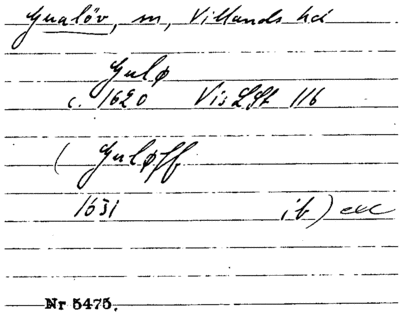 Gualöv, m, Villands hd
Gulø
c. 1620 Vis LSt 116
( Guløff
1631 ib) exc
Nr 5475.